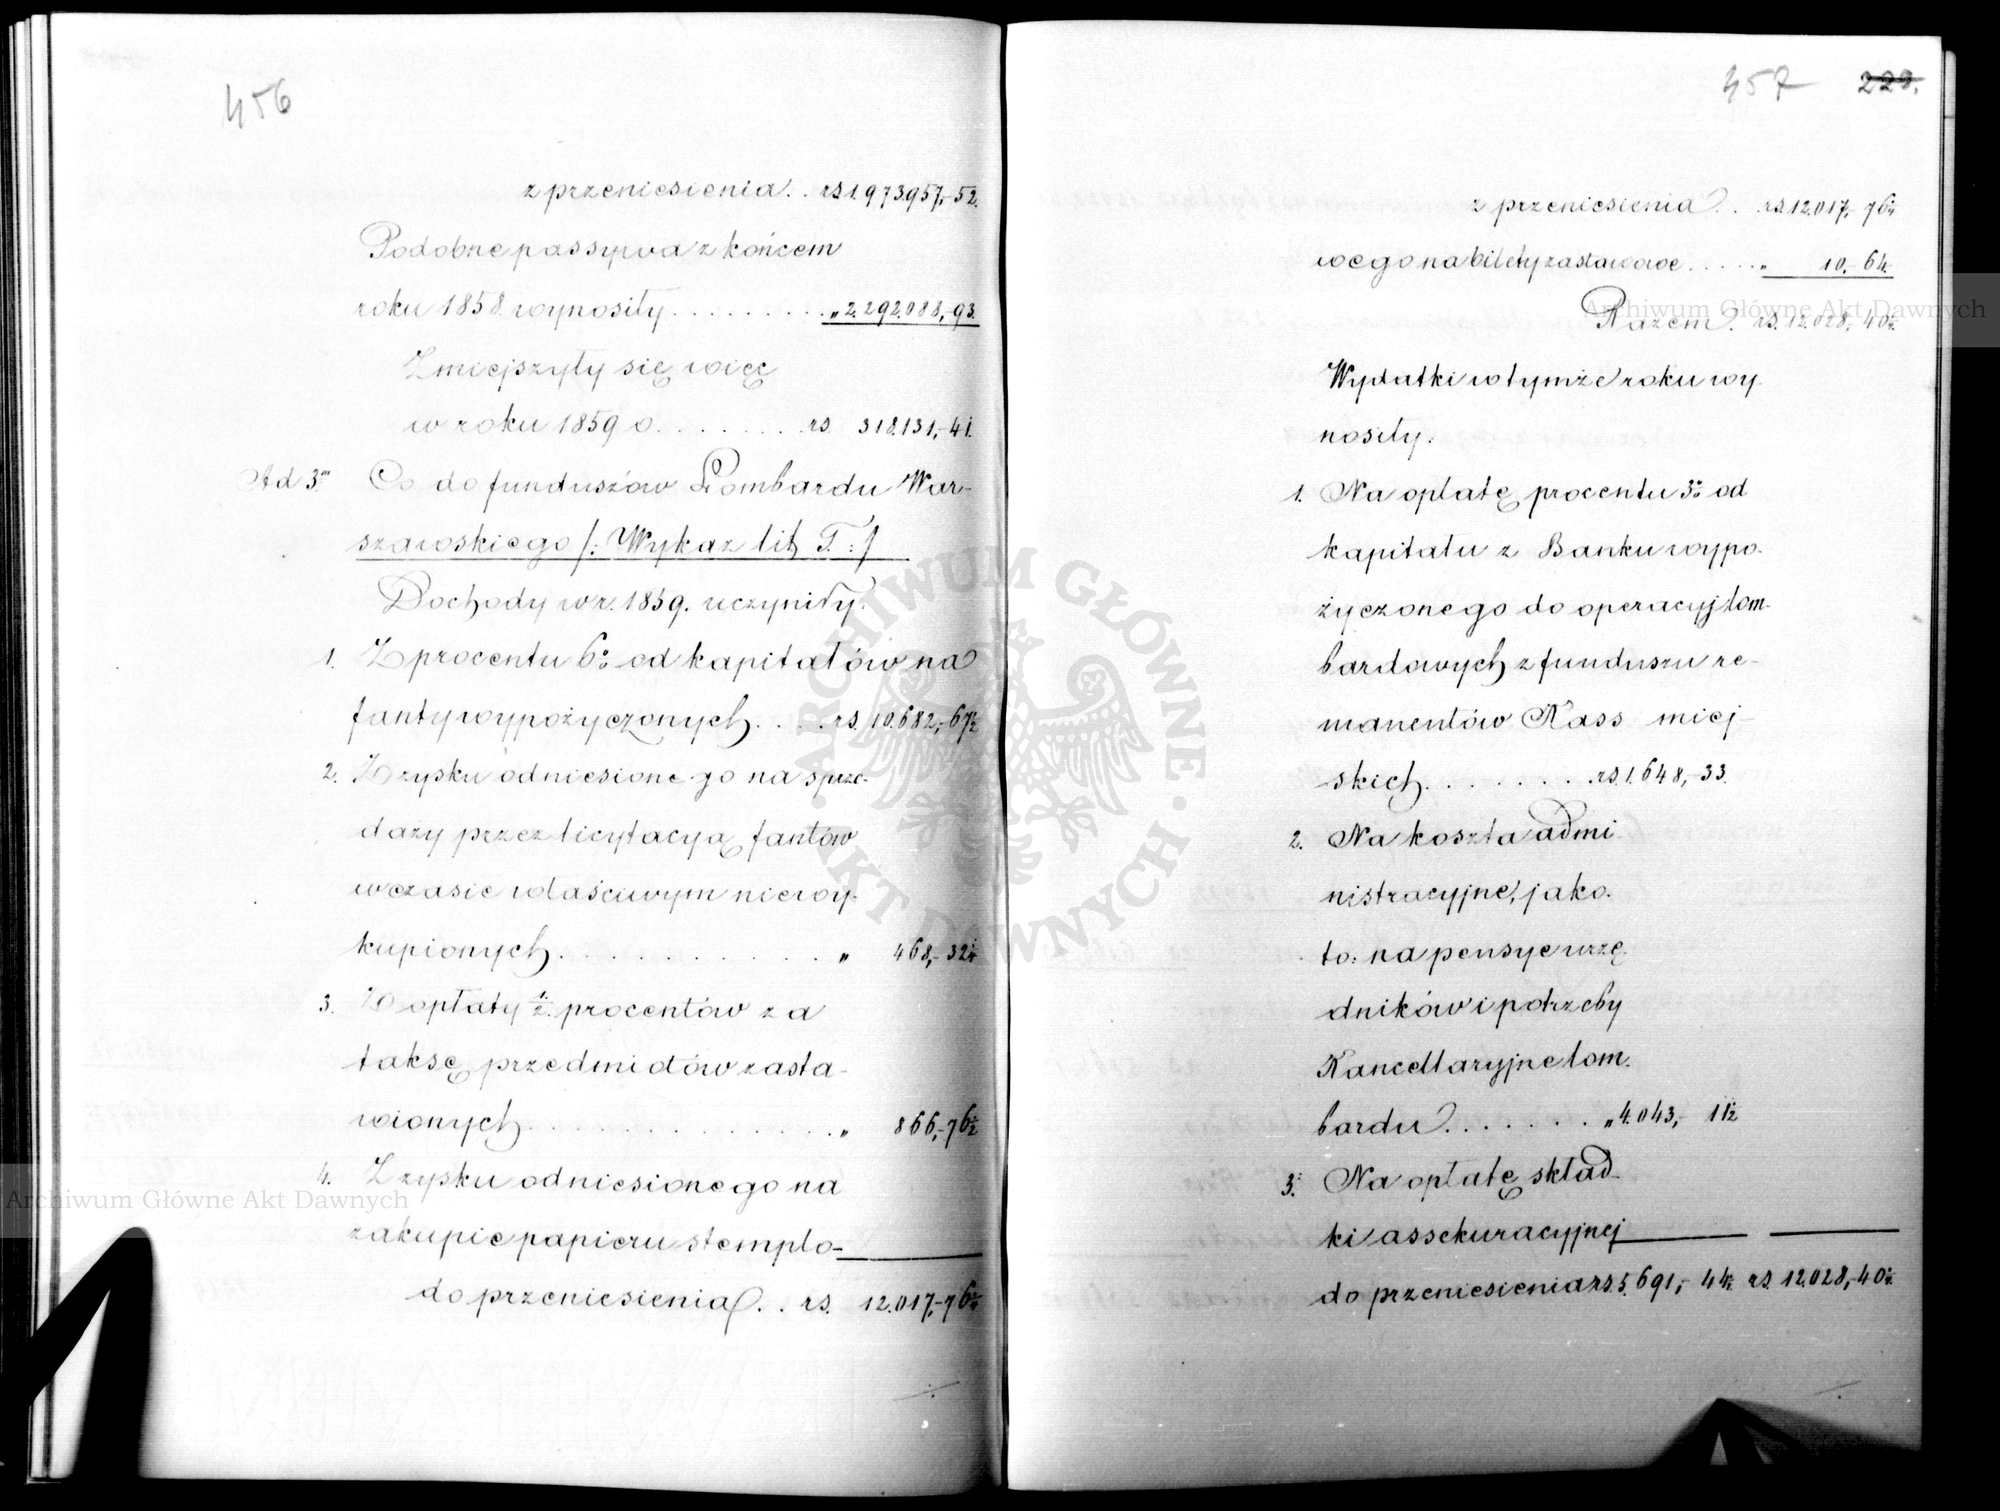 456
z przeniesienia . . rs. 1.973.957,-52.
Podobne passywa z końcem
roku 1858 wynosiły . . . . . . . . . „ 2.292.088,-93.
Zmiejszyły się więc
w roku 1859 o . . . . . . . rs. 318.131,-41.
Ad 3m Co do funduszów Lombardu War-
szawskiego /: Wykaz lit. T. :/
Dochody w r. 1859. uczyniły.
1. Z procentu 6% od kapitałów na
fanty wypożyczonych . . . . rs. 10.682,-67½
2. Z zysku odniesionego na sprze-
daży przez licytacyą fantów
w czasie właściwym niewy-
kupionych . . . . . . . . . . . . „ 468,-32¼
3. Z opłaty ½ procentów za
taksę przedmiotów zasta-
wionych . . . . . . . . . . . . . „ 866,-76½
4. Z zysku odniesionego na
zakupie papieru stemplo-
do przeniesienia . . rs. 12.017,-76¼
457 223.
z przeniesienia . . rs. 12.017,-76¼
wego na bilety zastawowe . . . . . „ 10,-64.
Razem . rs. 12.028,-40¼
Wydatki w tymże roku wy-
nosiły.
1. Na opłatę procentu 3% od
kapitału z Banku wypo-
życzonego do operacyj lom-
bardowych z funduszu re-
manentów Kass miej-
skich . . . . . . . . rs. 1.648,-33.
2. Na koszta admi
nistracyjne, jako-
to: na pensye urzę-
dników i potrzeby
Kancellaryjne lom-
bardu . . . . . . . „ 4.043,-11½
3. Na opłatę skład-
ki assekuracyjnej
do przeniesienia rs. 5.691,-44½ rs. 12.028,-40¼
Archiwum Główne Akt Dawnych
Archiwum Główne Akt Dawnych
· ARCHIWUM GŁÓWNE · AKT DAWNYCH